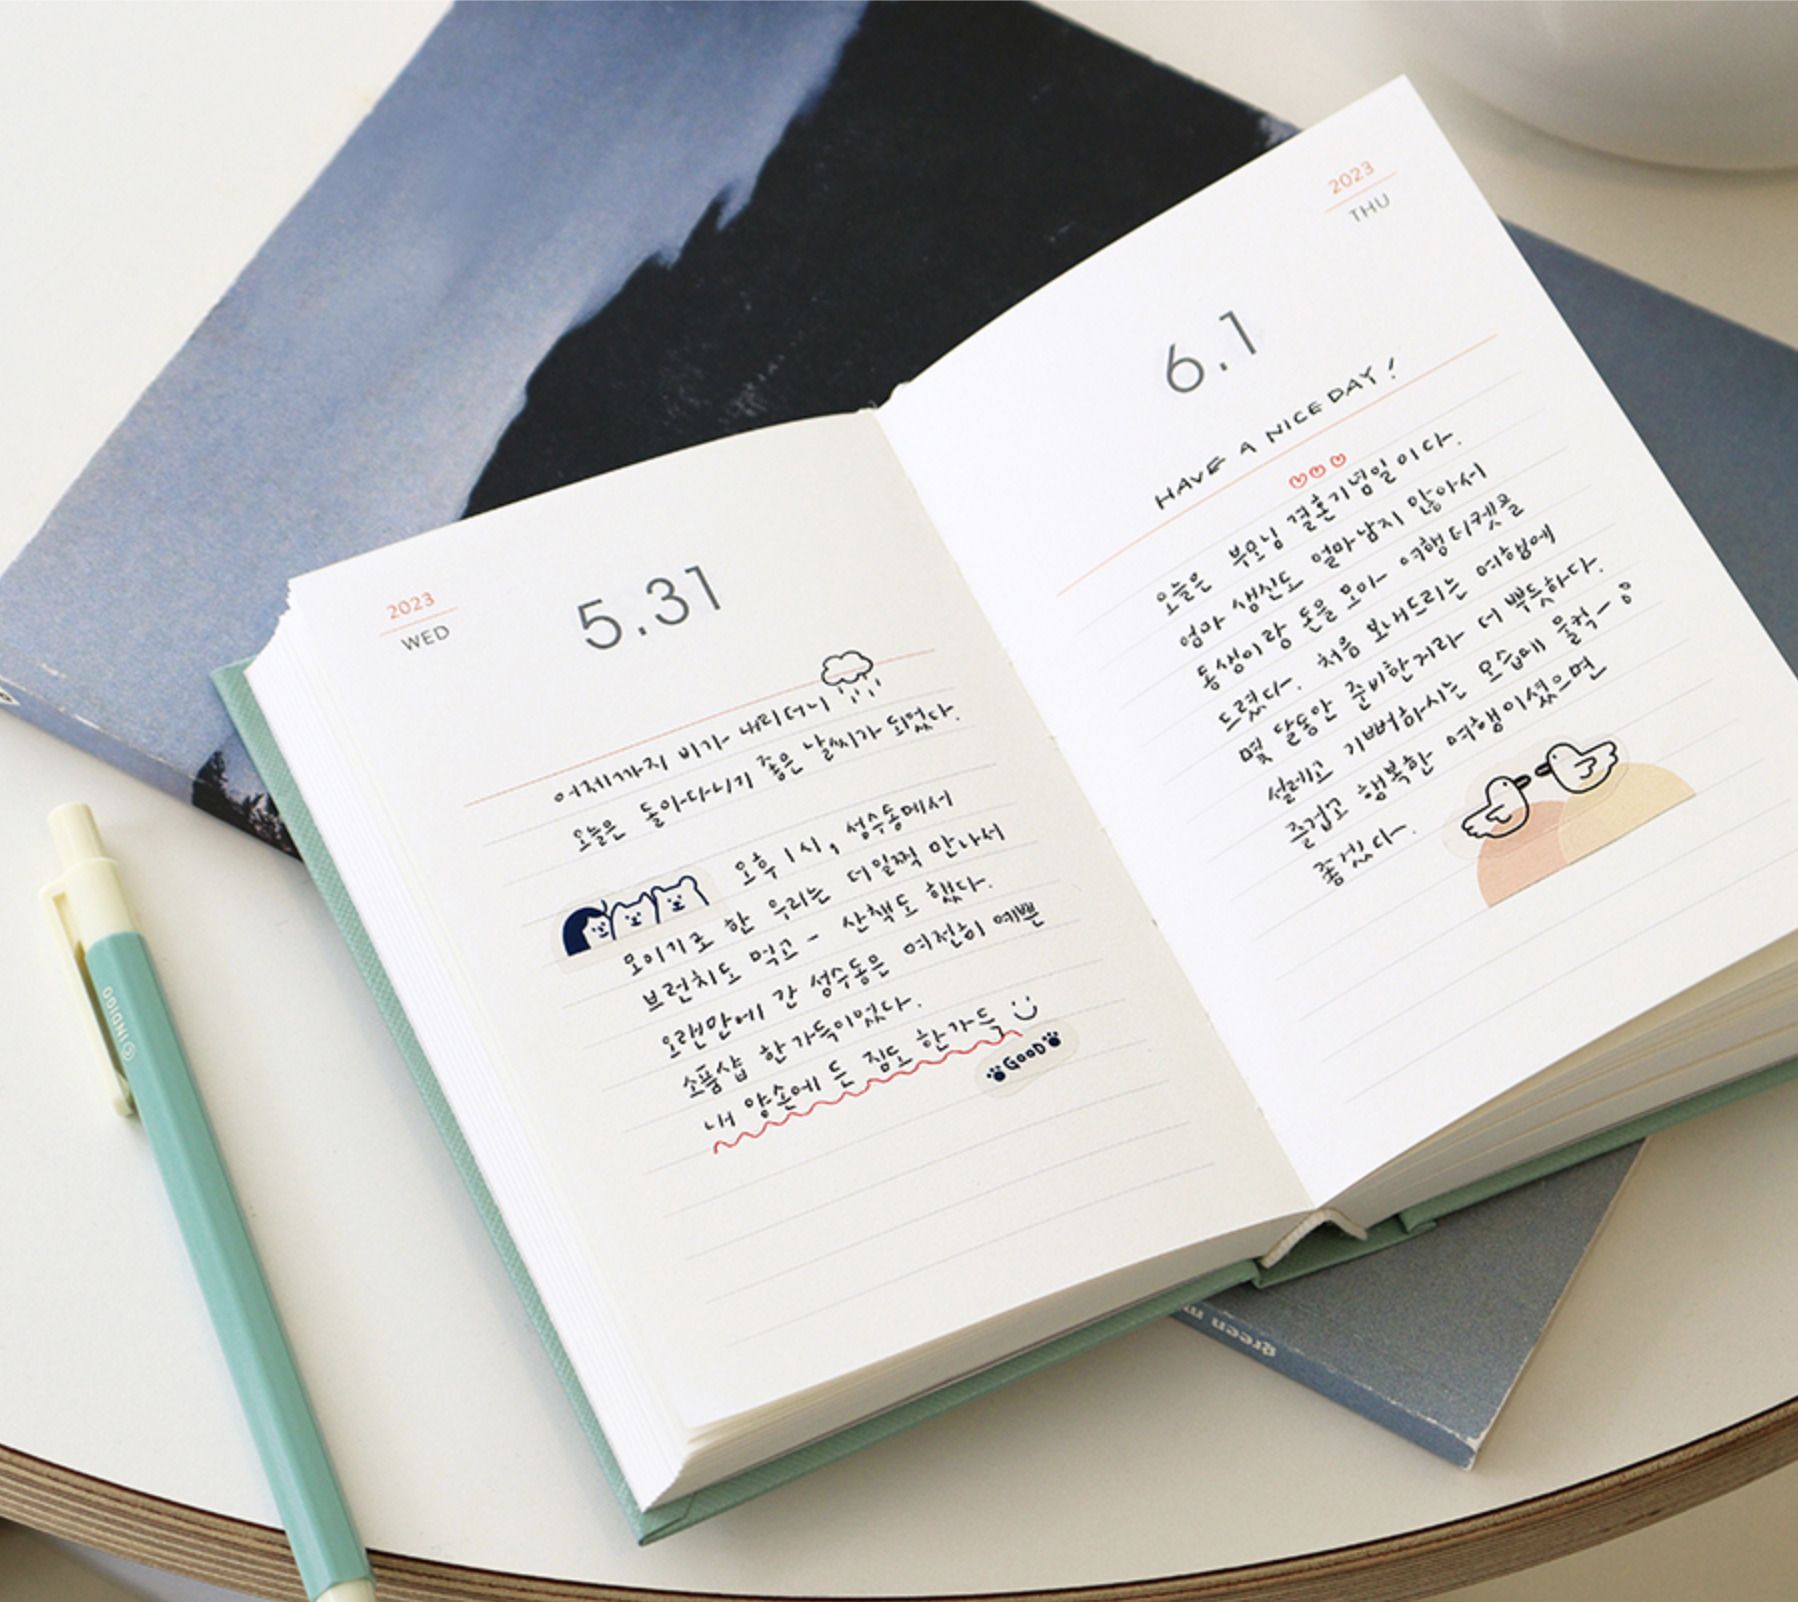 2023
WED
5.31
어제까지 비가 내리더니
오늘은 돌아다니기 좋은 날씨가 되었다.
오후 1시, 성수동에서
모이기로 한 우리는 더일찍 만나서
브런치도 먹고- 산책도 했다.
오랜만에 간 성수동은 여전히 예쁜
소품샵 한가득이었다.
내 양손에 든 짐도 한가득
GOOD
2023
THU
6.1
HAVE A NICE DAY!
오늘은 부모님 결혼기념일이다.
엄마 생신도 얼마남지 않아서
동생이랑 돈을 모아 여행티켓을
드렸다. 처음 보내드리는 여행에
몇 달동안 준비한거라 더 뿌듯하다.
설레고 기뻐하시는 모습에 울컥-
즐겁고 행복한 여행이셨으면
좋겠다.
INDIGO
green m